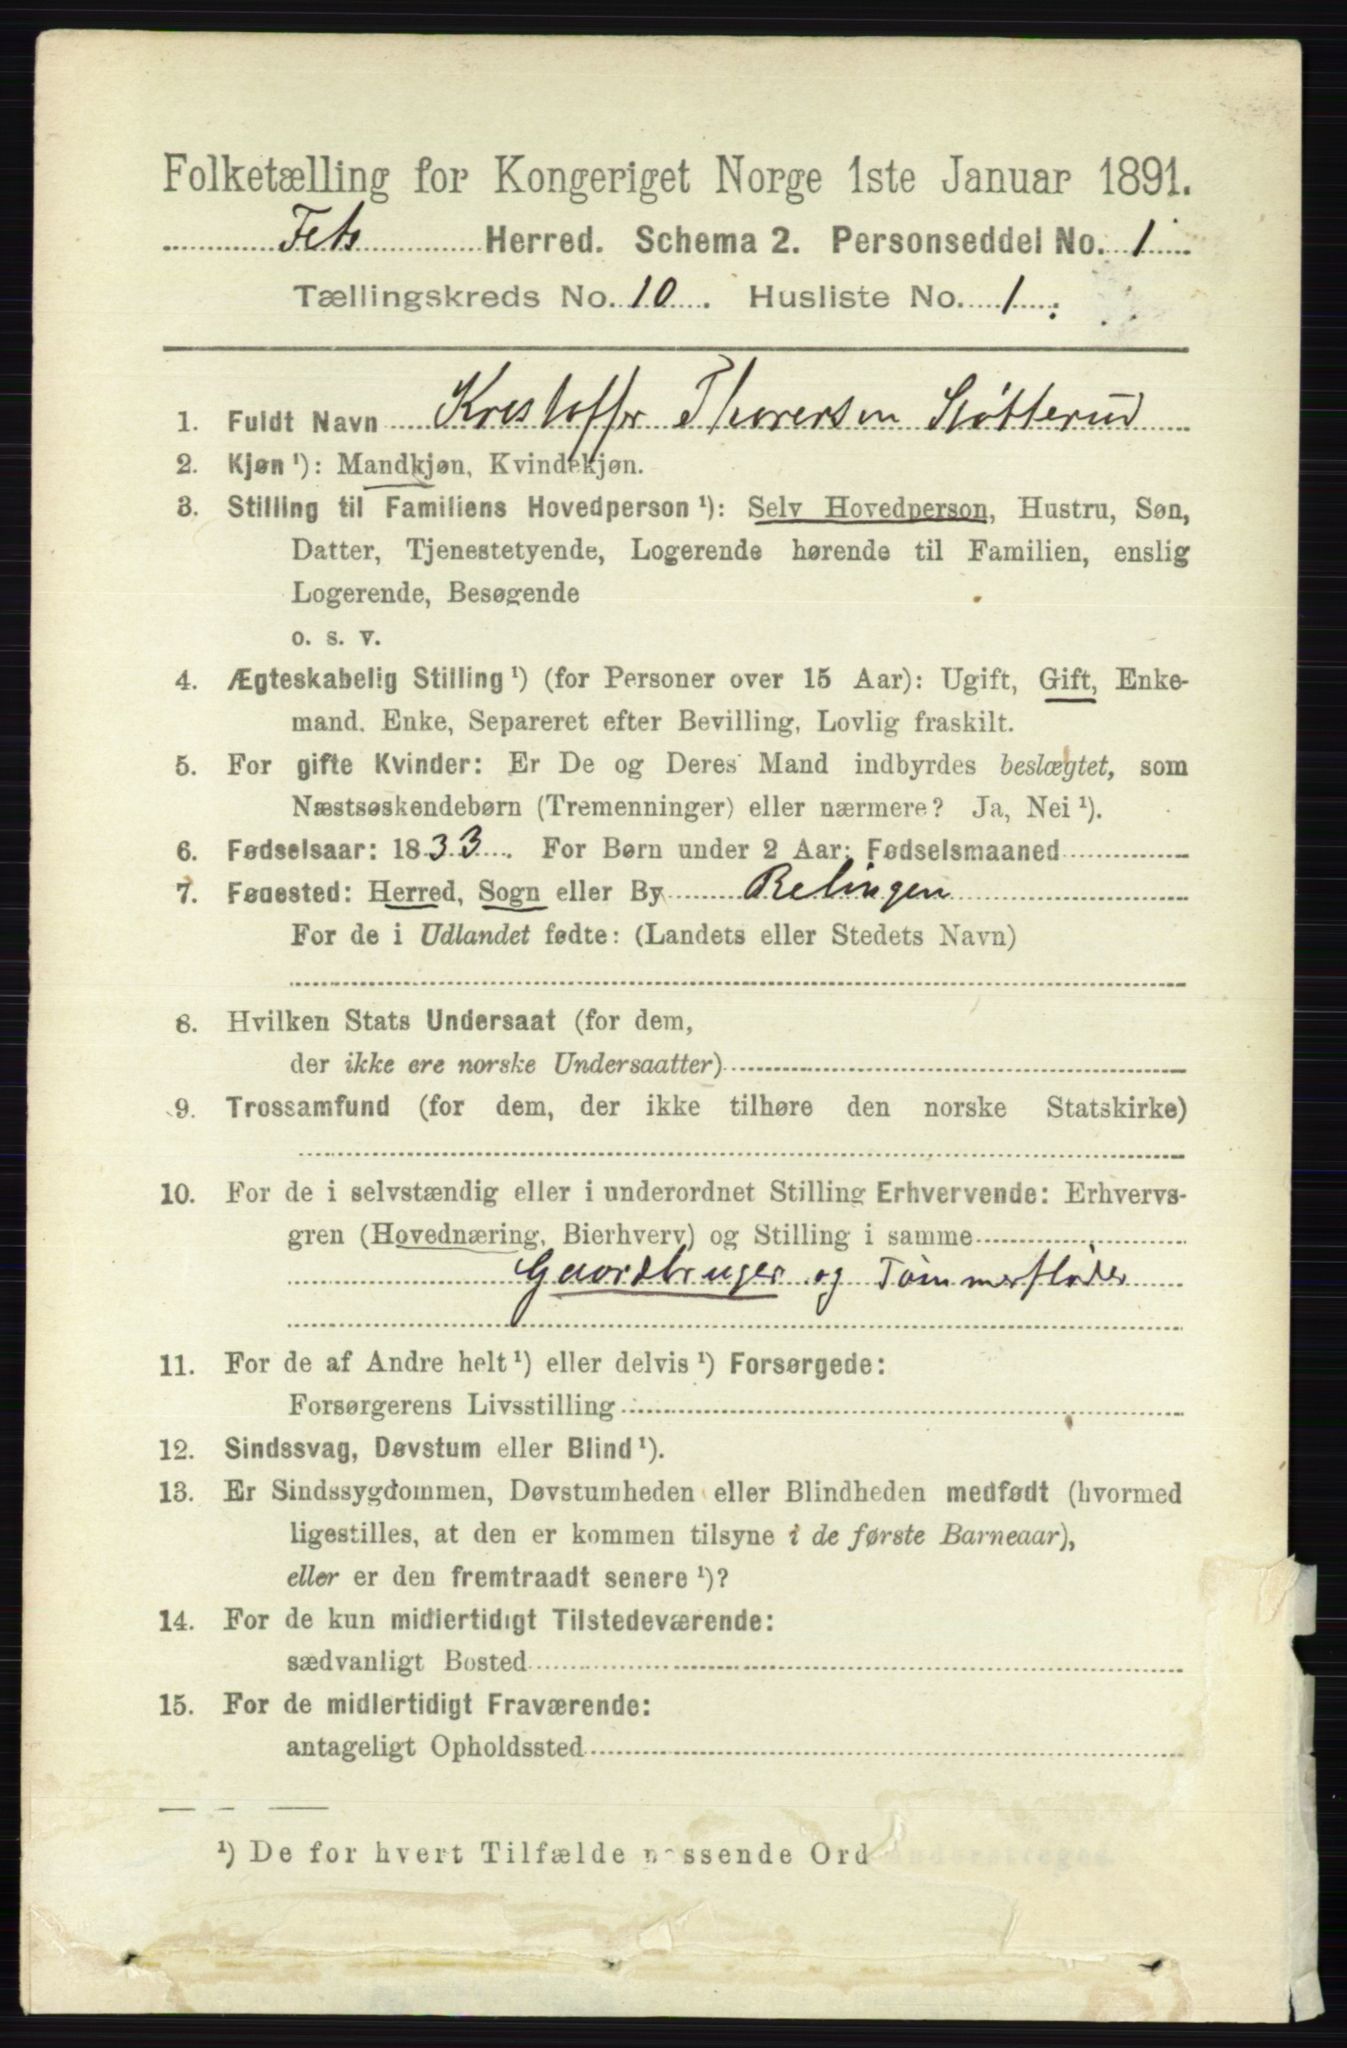 Folketælling for Kongeriget Norge 1ste Januar 1891.
Fets Herred. Schema 2. Personseddel No. 1
Tællingskreds No. 10. Husliste No. 1.
1. Fuldt Navn Krestoffer Thoresen Støtterud
2. Kjøn ¹): Mandkjøn, Kvindekjøn.
3. Stilling til Familiens Hovedperson ¹): Selv Hovedperson, Hustru, Søn,
Datter, Tjenestetyende, Logerende hørende til Familien, enslig
Logerende, Besøgende
o. s. v.
4. Ægteskabelig Stilling ¹) (for Personer over 15 Aar): Ugift, Gift, Enke-
mand, Enke, Separeret efter Bevilling, Lovlig fraskilt.
5. For gifte Kvinder: Er De og Deres Mand indbyrdes beslægtet, som
Næstsøskendebørn (Tremenninger) eller nærmere? Ja, Nei ¹).
6. Fødselsaar: 1833. For Børn under 2 Aar: Fødselsmaaned
7. Fødested: Herred, Sogn eller By Relingen
For de i Udlandet fødte: (Landets eller Stedets Navn)
8. Hvilken Stats Undersaat (for dem,
der ikke ere norske Undersaatter)
9. Trossamfund (for dem, der ikke tilhøre den norske Statskirke)
10. For de i selvstændig eller i underordnet Stilling Erhvervende: Erhvervs-
gren (Hovednæring, Bierhverv) og Stilling i samme
Gaardbruger og Tømmerfløder
11. For de af Andre helt ¹) eller delvis ¹) Forsørgede:
Forsørgerens Livsstilling
12. Sindssvag, Døvstum eller Blind ¹).
13. Er Sindssygdommen, Døvstumheden eller Blindheden medfødt (hvormed
ligestilles, at den er kommen tilsyne i de første Barneaar),
eller er den fremtraadt senere ¹)?
14. For de kun midlertidigt Tilstedeværende:
sædvanligt Bosted
15. For de midlertidigt Fraværende:
antageligt Opholdssted
¹) De for hvert Tilfælde passende Ord understreges.